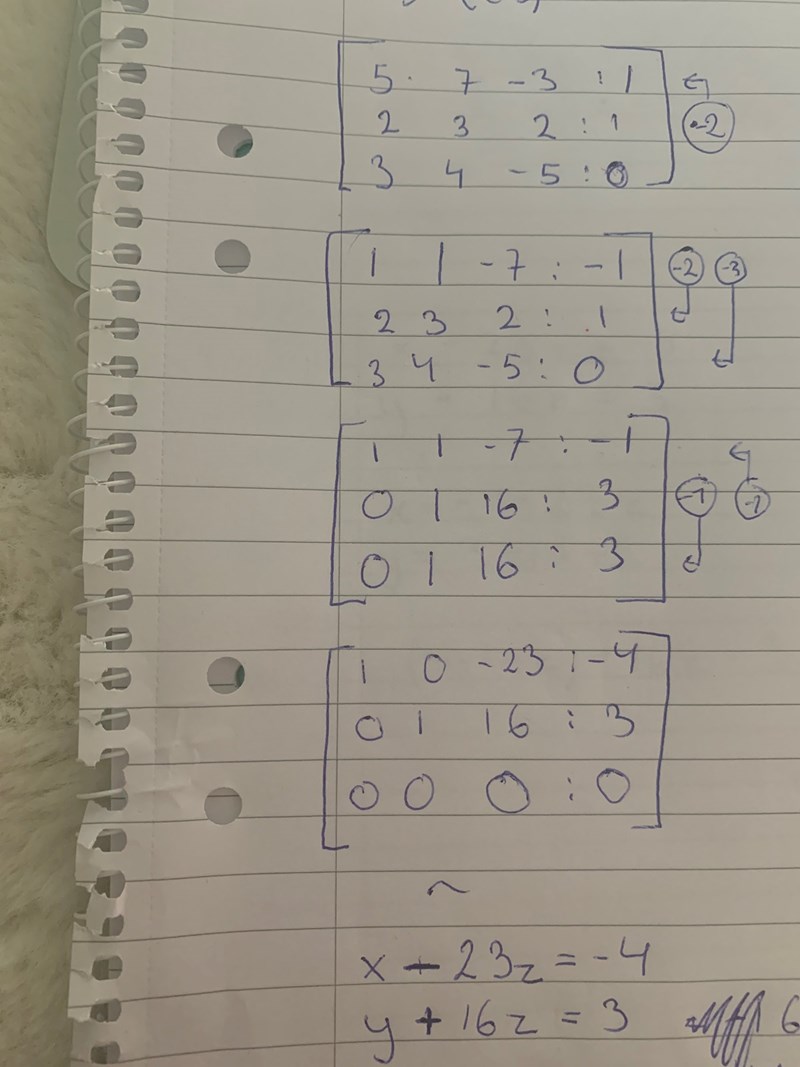 5 7 -3 : 1
2 3 2 : 1 -2
3 4 -5 : 0
1 1 -7 : -1 -2 -3
2 3 2 : 1
3 4 -5 : 0
1 1 -7 : -1
0 1 16 : 3 -1 -1
0 1 16 : 3
1 0 -23 : -4
0 1 16 : 3
0 0 0 : 0
~
x - 23z = -4
y + 16z = 3 6